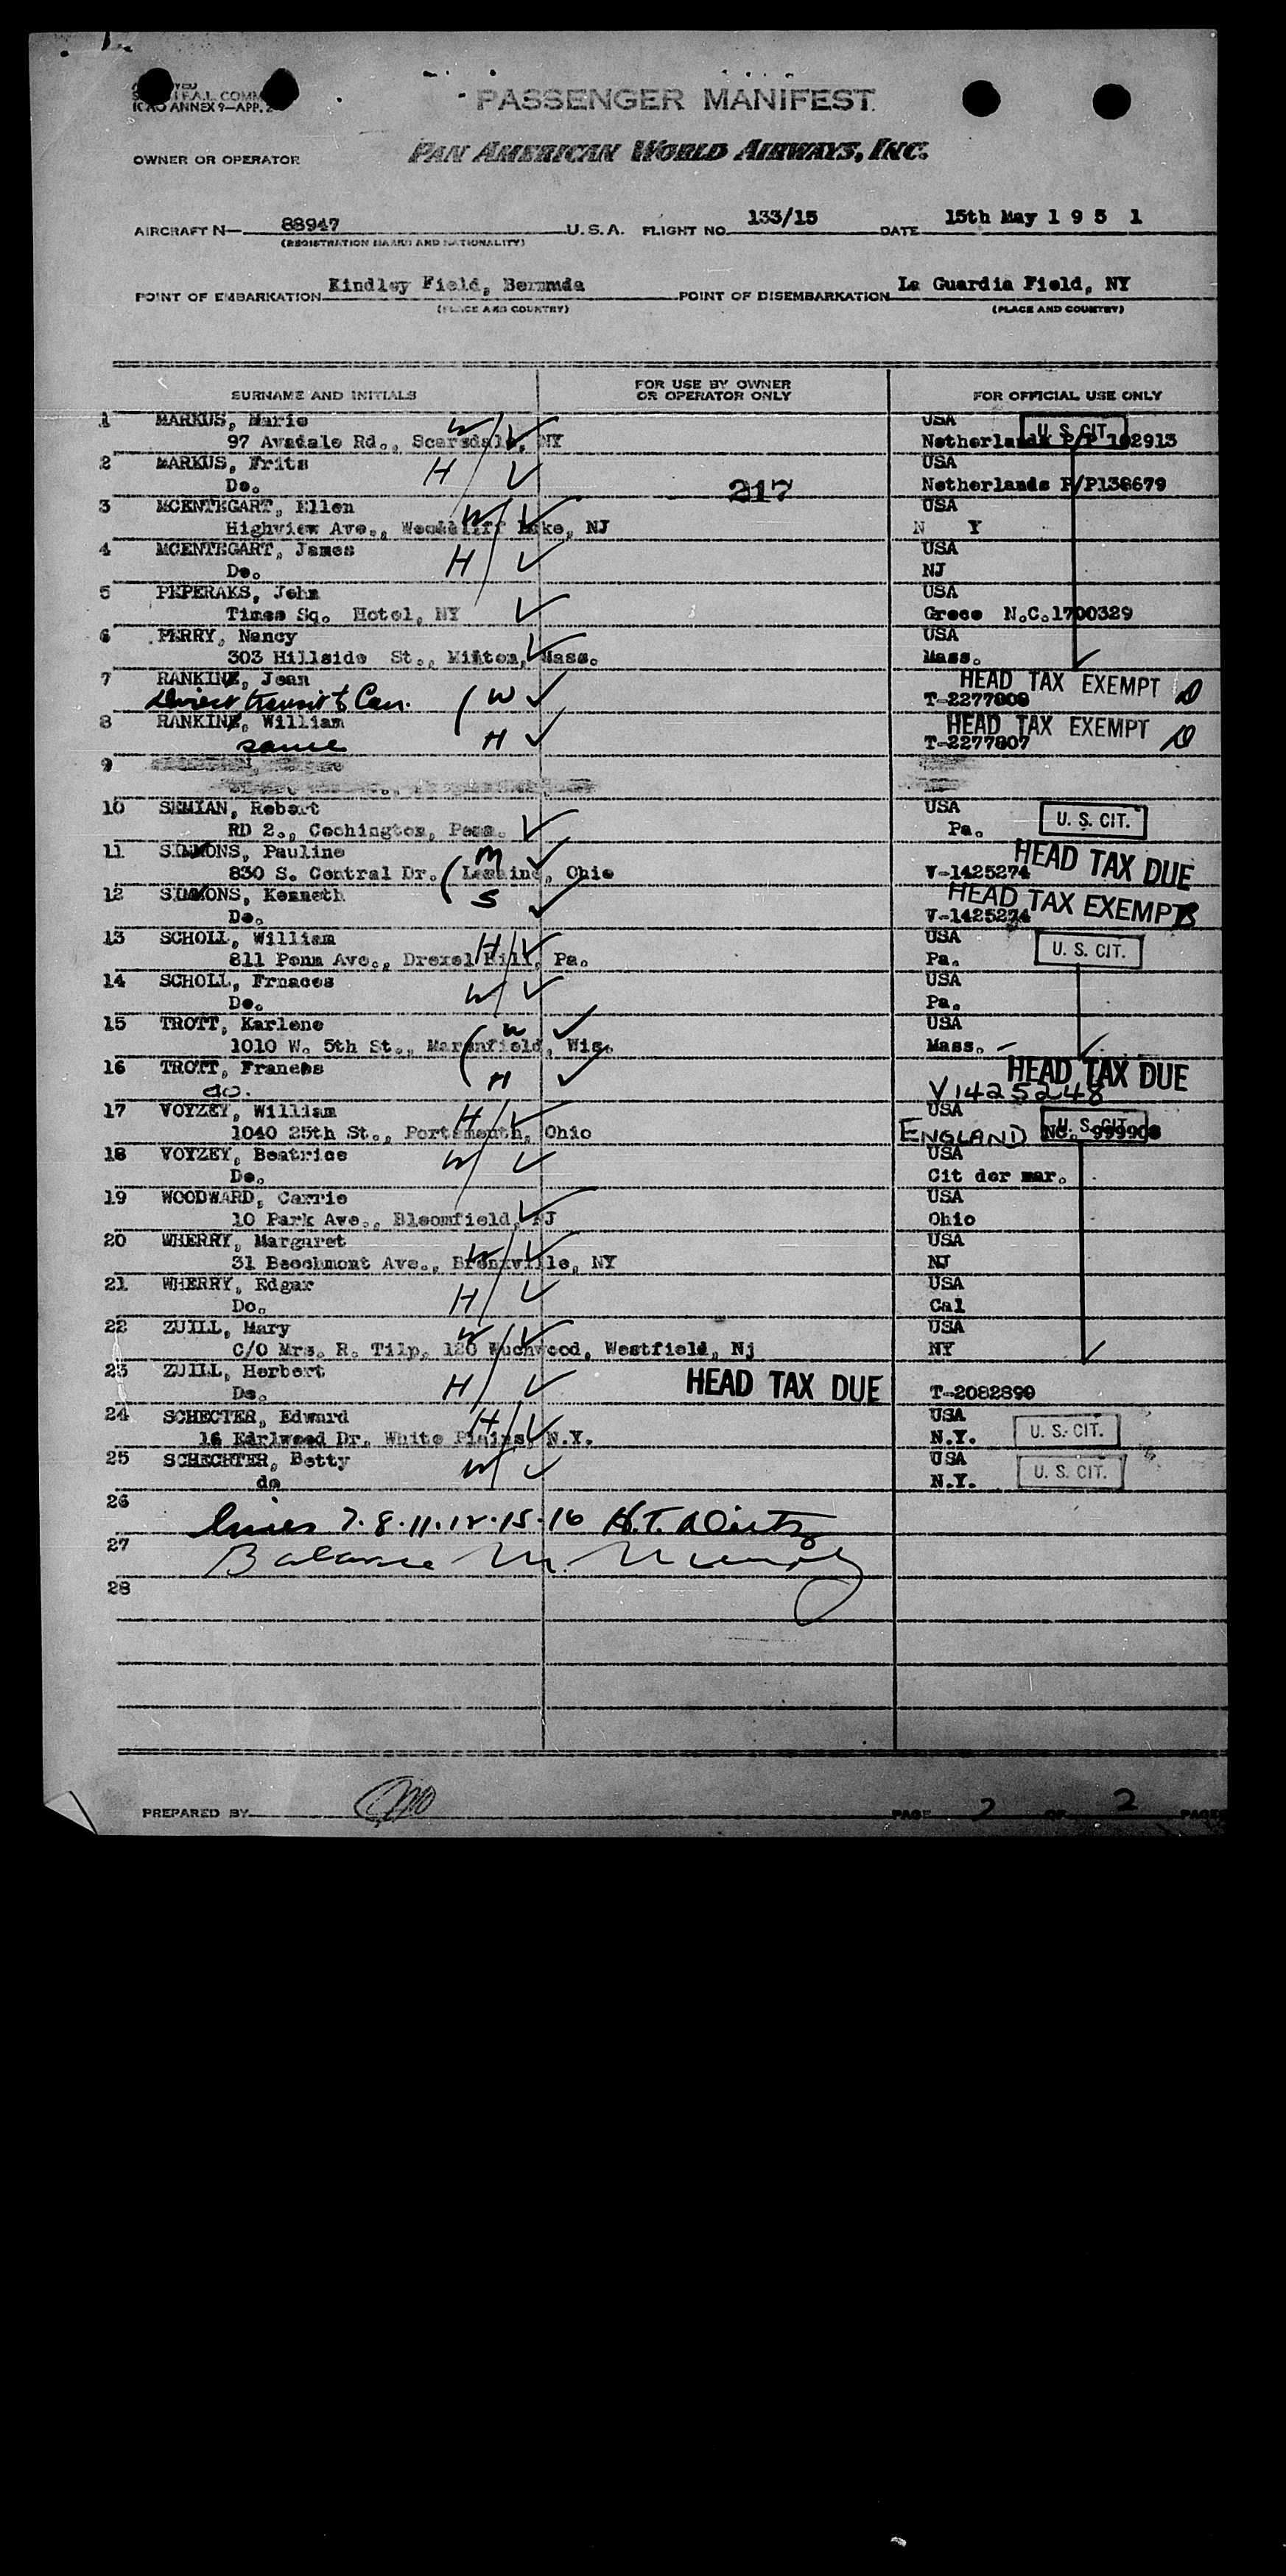 PASSENGER MANIFEST
ICAO ANNEX 9—APP. 2
OWNER OR OPERATOR PAN AMERICAN WORLD AIRWAYS, INC.
AIRCRAFT N— 88947 U.S.A. FLIGHT NO. 133/15 DATE 15th May 1 9 5 1
(REGISTRATION MARKS AND NATIONALITY)
POINT OF EMBARKATION Kindley Field, Bermuda POINT OF DISEMBARKATION La Guardia Field, NY
(PLACE AND COUNTRY) (PLACE AND COUNTRY)
SURNAME AND INITIALS FOR USE BY OWNER OR OPERATOR ONLY FOR OFFICIAL USE ONLY
1 MARKUS, Marie W USA U. S. CIT.
97 Avadale Rd., Scarsdale, NY Netherlands P/P 102913
2 MARKUS, Frits H USA
Do. 217 Netherlands P/P138679
3 MCENTEGART, Ellen W USA
Highview Ave., Woodcliff Lake, NJ N Y
4 MCENTEGART, James H USA
Do. NJ
5 PEPERAKS, John USA
Times Sq. Hotel, NY Grece N.C.1700329
6 PERRY, Nancy USA
303 Hillside St., Milton, Mass. Mass.
7 RANKINE, Jean HEAD TAX EXEMPT D
Direct transit to Can. W T-2277808
8 RANKINE, William HEAD TAX EXEMPT D
same H T-2277807
9
10 SEMIAN, Robert USA U. S. CIT.
RD 2., Cochington, Penn. Pa.
11 SIMMONS, Pauline M HEAD TAX DUE
830 S. Central Dr. Ohio V-1425274
12 SIMMONS, Kenneth S HEAD TAX EXEMPT B
Do. V-1425274
13 SCHOLL, William H USA U. S. CIT.
811 Penn Ave., Drexel Hill, Pa. Pa.
14 SCHOLL, Frnaces W USA
Do. Pa.
15 TROTT, Karlene W USA
1010 W. 5th St., Marshfield, Wis. Mass.
16 TROTT, Frances H HEAD TAX DUE
do. V1425248
17 VOYZEY, William H USA U. S. CIT.
1040 25th St., Portsmouth, Ohio ENGLAND No. 999908
18 VOYZEY, Beatrice W USA
Do. Cit der mar.
19 WOODWARD, Carrie USA
10 Park Ave., Bloomfield, NJ Ohio
20 WHERRY, Margaret W USA
31 Beechmont Ave., Bronxville, NY NJ
21 WHERRY, Edgar H USA
Do. Cal
22 ZUILL, Mary W USA
C/O Mrs. R. Tilp, 126 Wuchwood, Westfield, Nj NY
23 ZUILL, Herbert H HEAD TAX DUE
Do. T-2082899
24 SCHECTER, Edward H USA U. S. CIT.
16 Earlwood Dr, White Plains, N.Y. N.Y.
25 SCHECHTER, Betty W USA U. S. CIT.
do N.Y.
26 Lines 7-8-11-12-15-16 H.T.
27 Balance M.
28
PREPARED BY PAGE 2 OF 2 PAGES